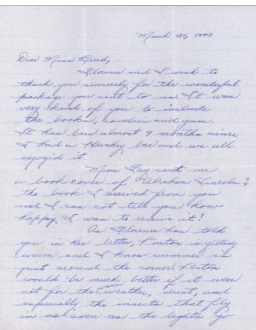 March 25, 1943
Dear Miss Breed,
Florence and I wish to
thank you sincerely for the wonderful
package you sent to us. It was
very kind of you to include
the books, candies and gum.
It has been about 9 months since
I had a Hershey bar and we all
enjoyed it.
Miss Gay sent me
a book cover of "Abraham Lincoln"
the book I received from you
and I can not tell you how
happy I was to receive it!
As Florence has told
you in her letter, Poston is getting
warm and I know summer is
just around the corner. Poston
would be much better if it were
not for the weather, dust and
especially the insects that fly
in as soon as the lights go